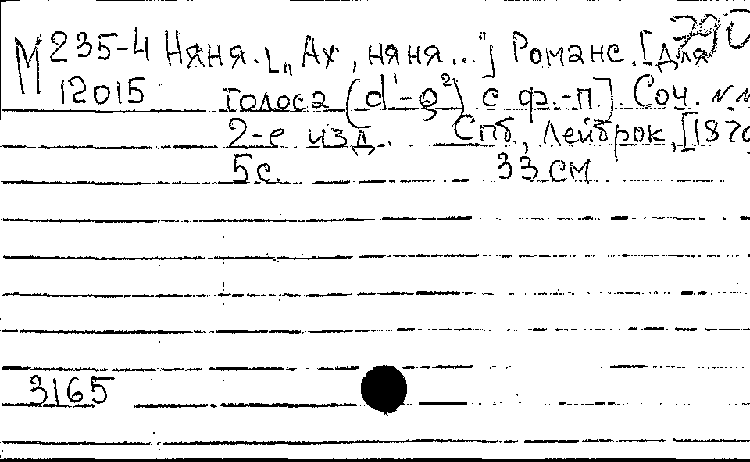 М 235-4 Няня. [„Ах, няня..."] Романс. [для
12015 голоса (d¹-g²) с ф.-п.] Соч. N.N.
2-е изд. Спб, Лейброк, [187
5с. 33 см
3165